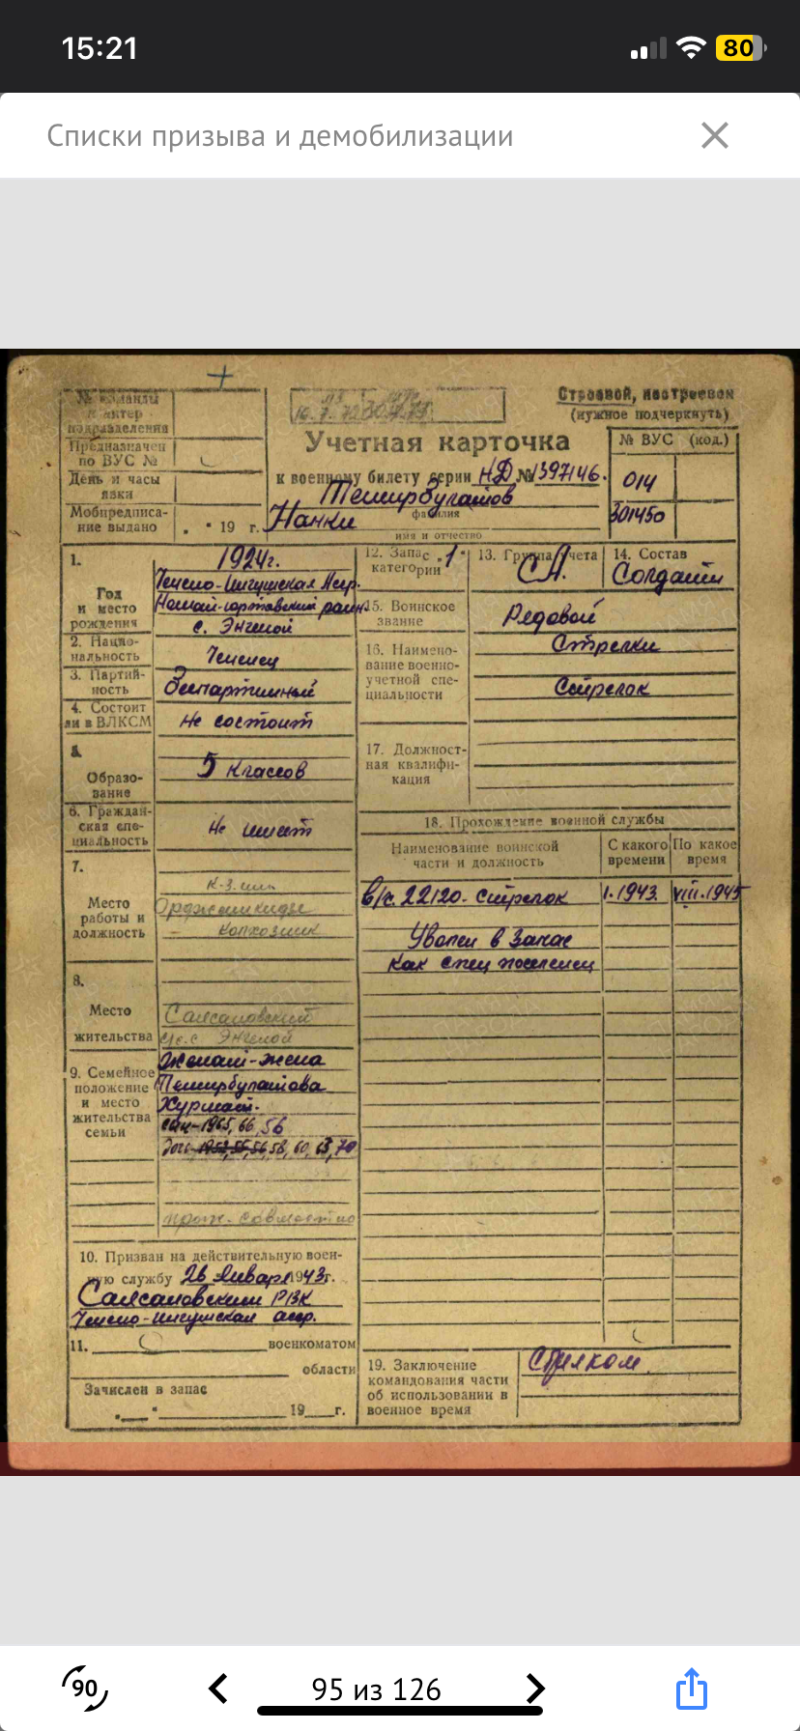 15:21
80
Списки призыва и демобилизации
Строевой, нестроевой
(нужное подчеркнуть)
№ команды
подразделения
Предназначен
по ВУС №
День и часы
явки
Мобпредписа-
ние выдано
" 19 г.
Учетная карточка
к военному билету серии НД № 1397146.
Темирбулатов
фамилия
Нанки
имя и отчество
№ ВУС (код.)
014
301450
1.
Год
и место
рождения
1924г.
Чечено-Ингушская Асср.
Ножай-юртовский район
с. Энгеной
2. Нацио-
нальность
Чеченец
3. Партий-
ность
Беспартийный
4. Состоит
ли в ВЛКСМ
Не состоит
5.
Образо-
вание
5 классов
6. Граждан-
ская спе-
циальность
Не имеет
7.
Место
работы и
должность
к-з. им.
Орджоникидзе
- колхозник
8.
Место
жительства
Саясановский
с. Энгеной
9. Семейное
положение и
и место
жительства
семьи
Женат-жена
Темирбулатова
сын-1965, 66, 56
58, 60, 63, 70
прож. совместно
10. Призван на действительную воен-
ную службу 26 Января 1943г.
Саясановским РВК
Чечено-Ингушская асср.
11. военкоматом
области
Зачислен в запас
" " 19 г.
12. Запас
категории
1
13. Группа учета
СА.
14. Состав
Солдаты
15. Воинское
звание
Рядовой
16. Наимено-
вание военно-
учетной спе-
циальности
Стрелки
Стрелок
17. Должност-
ная квалифи-
кация
18. Прохождение военной службы
Наименование воинской
части и должность
С какого
времени
По какое
время
в/с. 22120. Стрелок
1.1943.
VIII.1945
Уволен в запас
как спец поселенец
19. Заключение
командования части
об использовании в
военное время
Стрелком
90
95 из 126